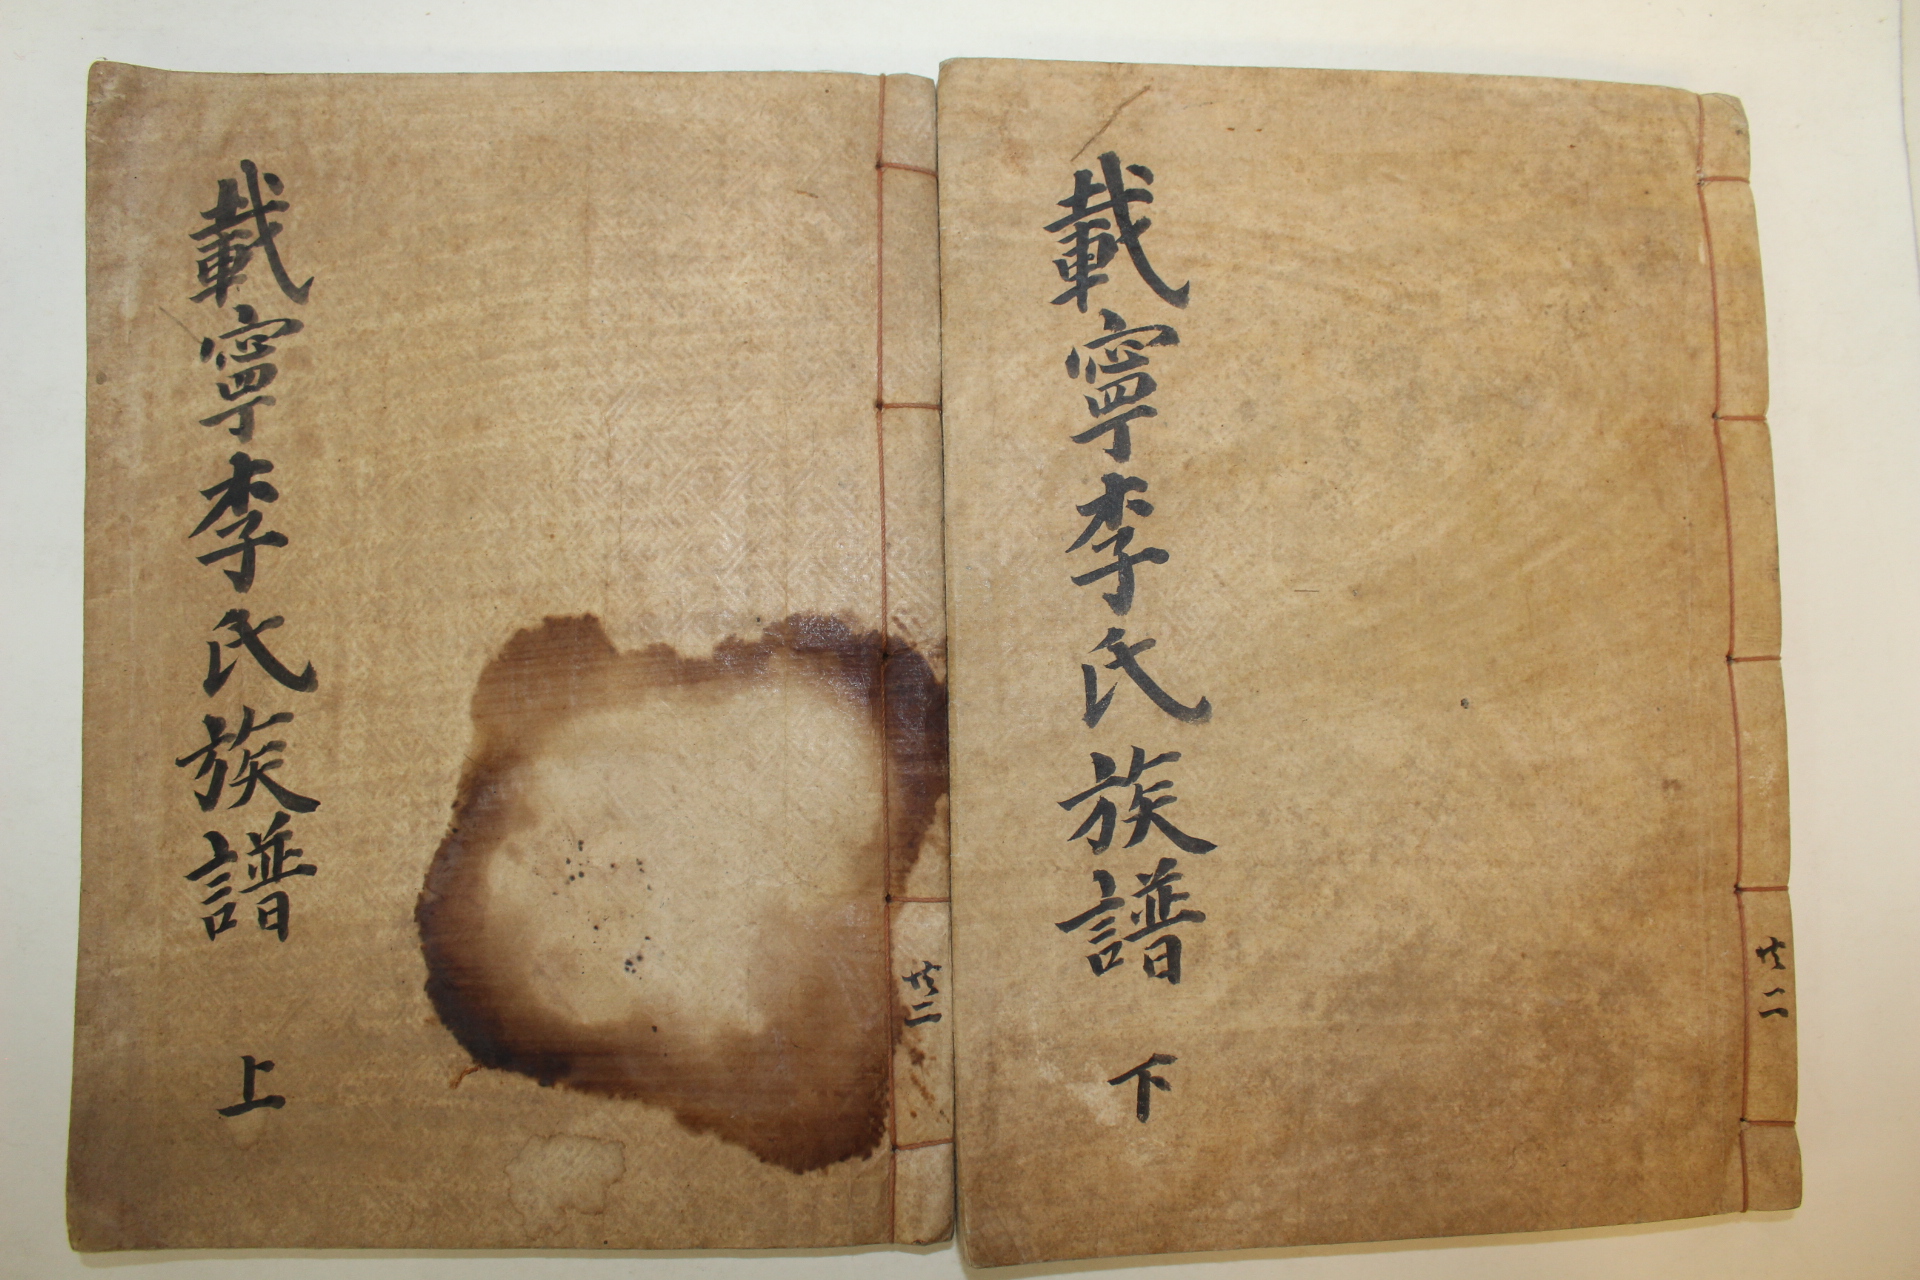 載寧李氏族譜 下
共二
載寧李氏族譜 上
共二